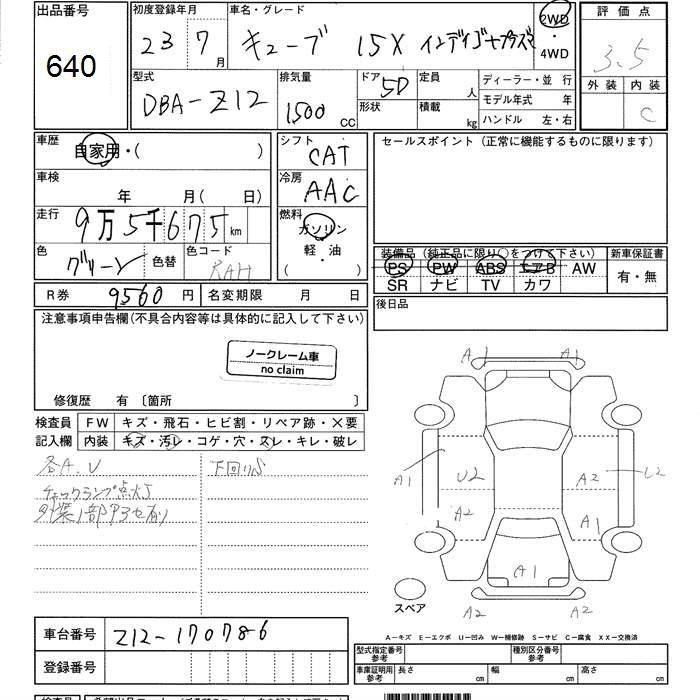 出品番号
640
初度登録年月
23 7 月
車名・グレード
キューブ 15X インディゴ+プラズマ
2WD
・
4WD
評価点
3.5
外装 内装
C
型式
DBA-Z12
排気量
1500 CC
ドア 5D
形状
定員 人
積載 kg
ディーラー・並行
モデル年式 年
ハンドル 左・右
車歴
自家用・( )
車検
年 月( 日)
走行
9万5千675 km
色
グリーン
色替
色コード
RAH
シフト
CAT
冷房
AAC
燃料
ガソリン
軽・油
( )
セールスポイント (正常に機能するものに限ります)
装備品 (純正品に限り○をつけて下さい)
PS PW ABS エアB AW
SR ナビ TV カワ
新車保証書
有・無
後日品
R券 9560 円
名変期限 月 日
注意事項申告欄(不具合内容等は具体的に記入して下さい)
ノークレーム車
no claim
修復歴 有 〔箇所 〕
検査員
記入欄
FW キズ・飛石・ヒビ割・リペア跡・×要
内装 キズ・汚レ・コゲ・穴・スレ・キレ・破レ
各A.U
下回りS
チェックランプ点灯
外装1部タワミ有り
A1 A1
A1 U2 A2 U2
A2 A1
A1
A2 A2
スペア
A-キズ E-エクボ U-凹み W-補修跡 S-サビ C-腐食 XX-交換済
車台番号 Z12-170786
登録番号
型式指定番号
参考
種別区分番号
参考
車庫証明用
参考
長さ cm 幅 cm 高さ cm